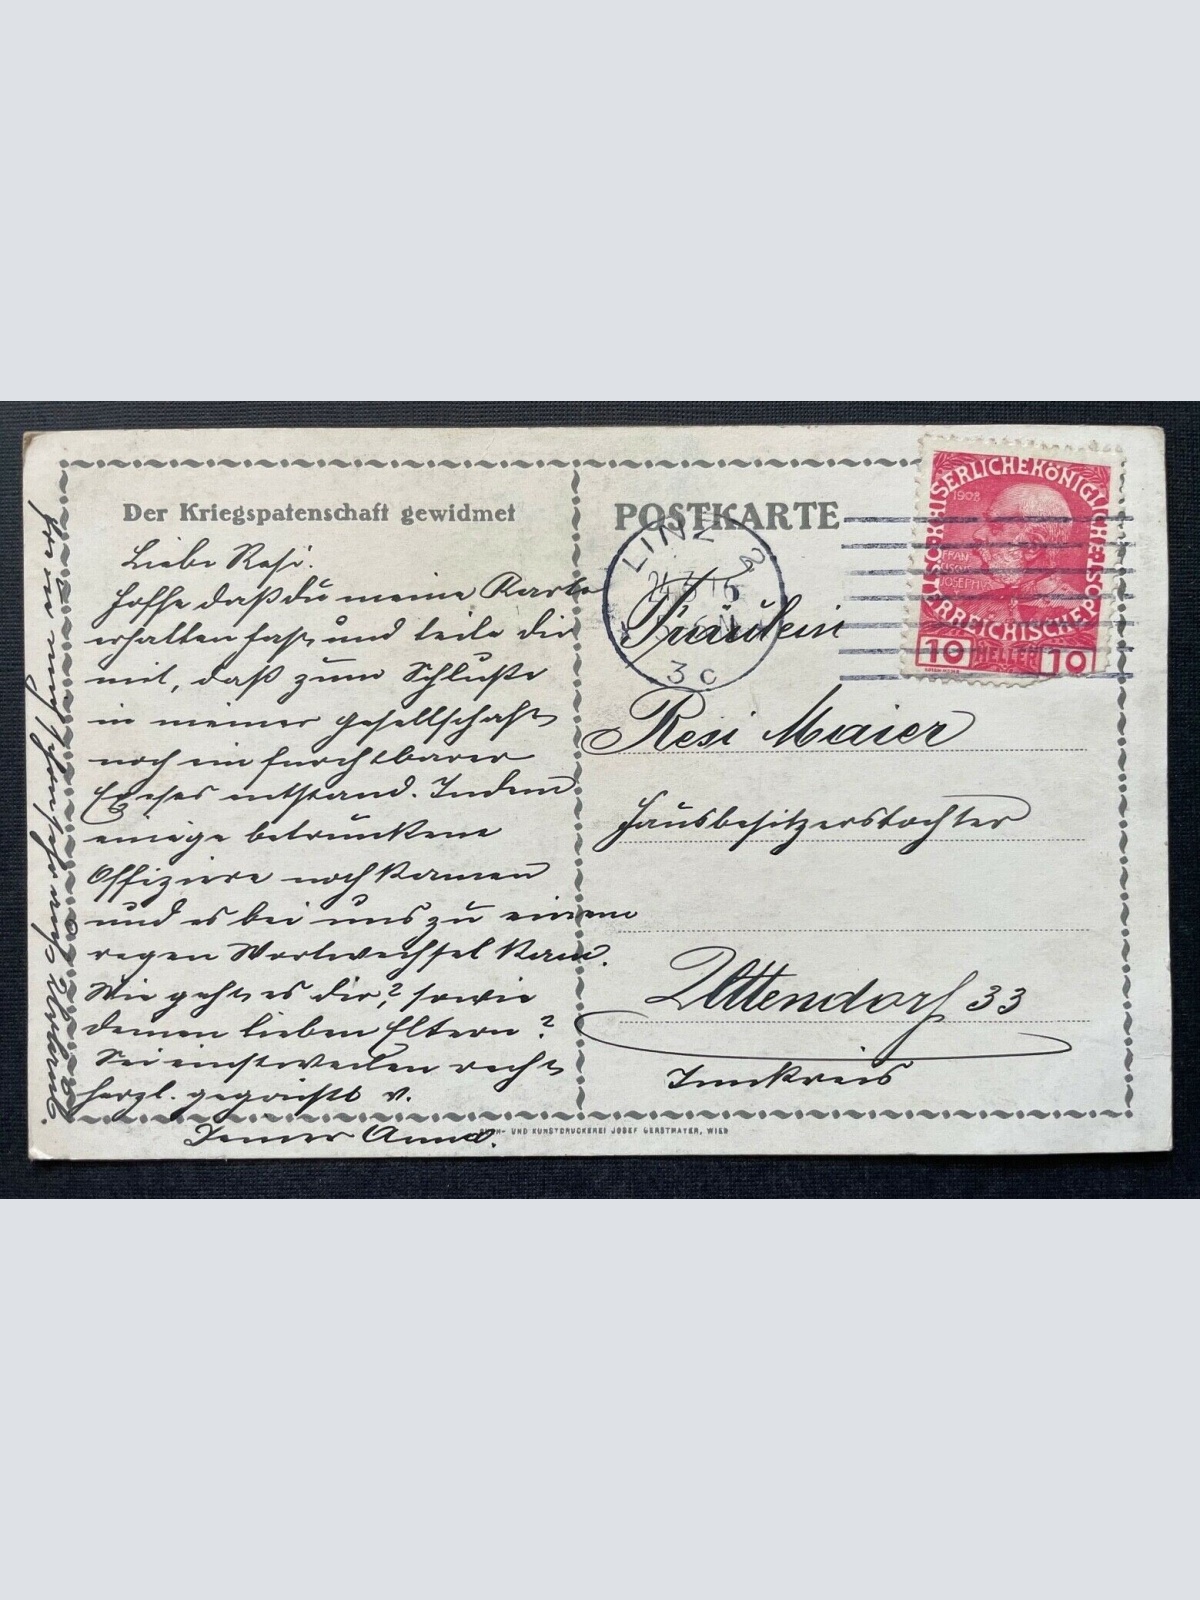 Der Kriegspatenschaft gewidmet
Liebe Resi.
Hoffe daß du meine Karte
erhalten hast, und teile dir
mit, daß zum Schluße
in meiner Gesellschaft
noch ein furchtbarer
Exzess entstand. Indem
einige betrunkene
Offiziere noch kamen
und es bei uns zu einem
regen Wortwechsel kam.
Wie geht es dir? sowie
deinen lieben Eltern?
Sei einstweilen recht
herzl. gegrüßt v.
Anna.
POSTKARTE
LINZ 2
3c
KAISERLICHE KÖNIGLICHE ÖSTERREICHISCHE POST
1908
FRANZ JOSEPH I
10 HELLER 10
Fräulein
Resi Maier
Hausbesitzerstochter
Uttendorf 33
Innkreis
BUCH- UND KUNSTDRUCKEREI JOSEF GERSTMAYER, WIEN